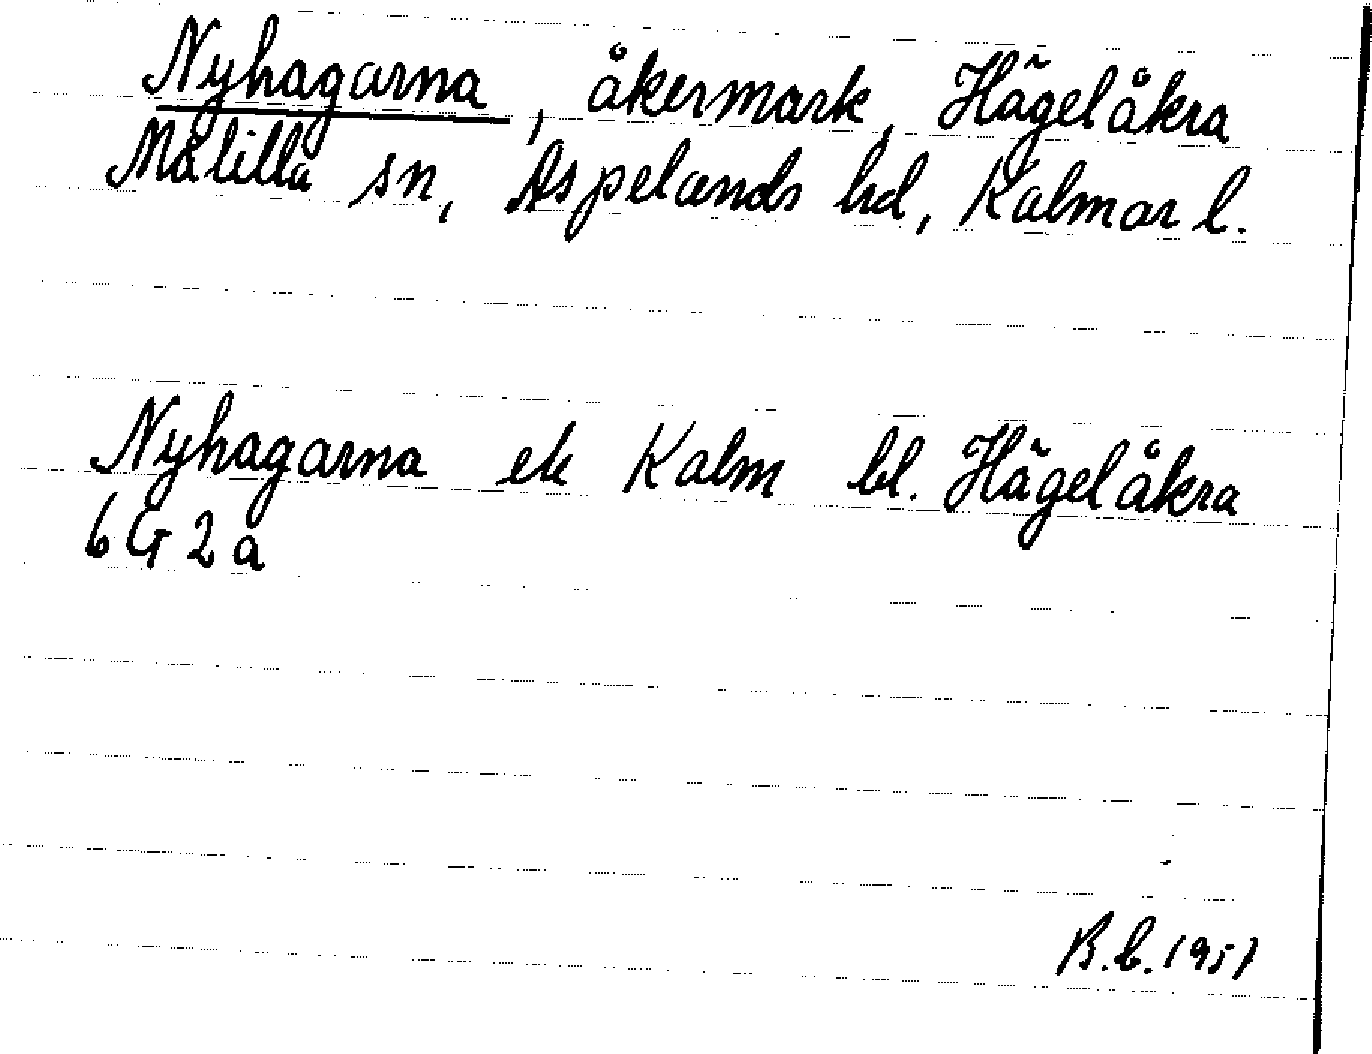 Nyhagarna, åkermark, Hägelåkra
Målilla sn, Aspelands hd, Kalmar l.
Nyhagarna ek Kalm bl. Hägelåkra
6 G 2 a
B.L. 1951